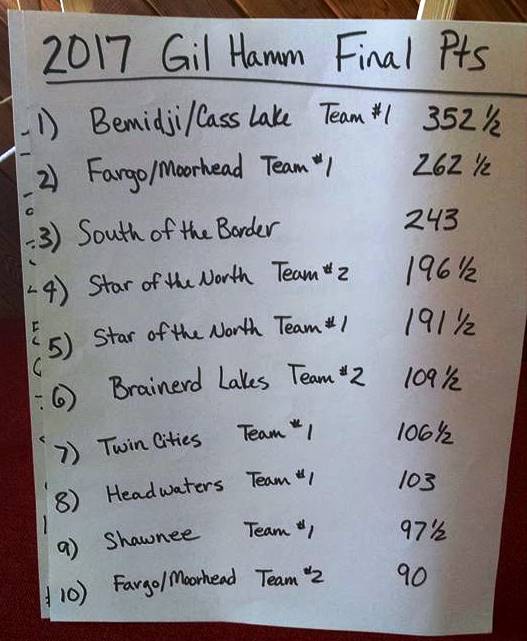 2017 Gil Hamm Final Pts
1) Bemidji/Cass Lake Team #1 352 ½
2) Fargo/Moorhead Team #1 262 ½
3) South of the Border 243
4) Star of the North Team #2 196 ½
5) Star of the North Team #1 191 ½
6) Brainerd Lakes Team #2 109 ½
7) Twin Cities Team #1 106 ½
8) Headwaters Team #1 103
9) Shawnee Team #1 97 ½
10) Fargo/Moorhead Team #2 90